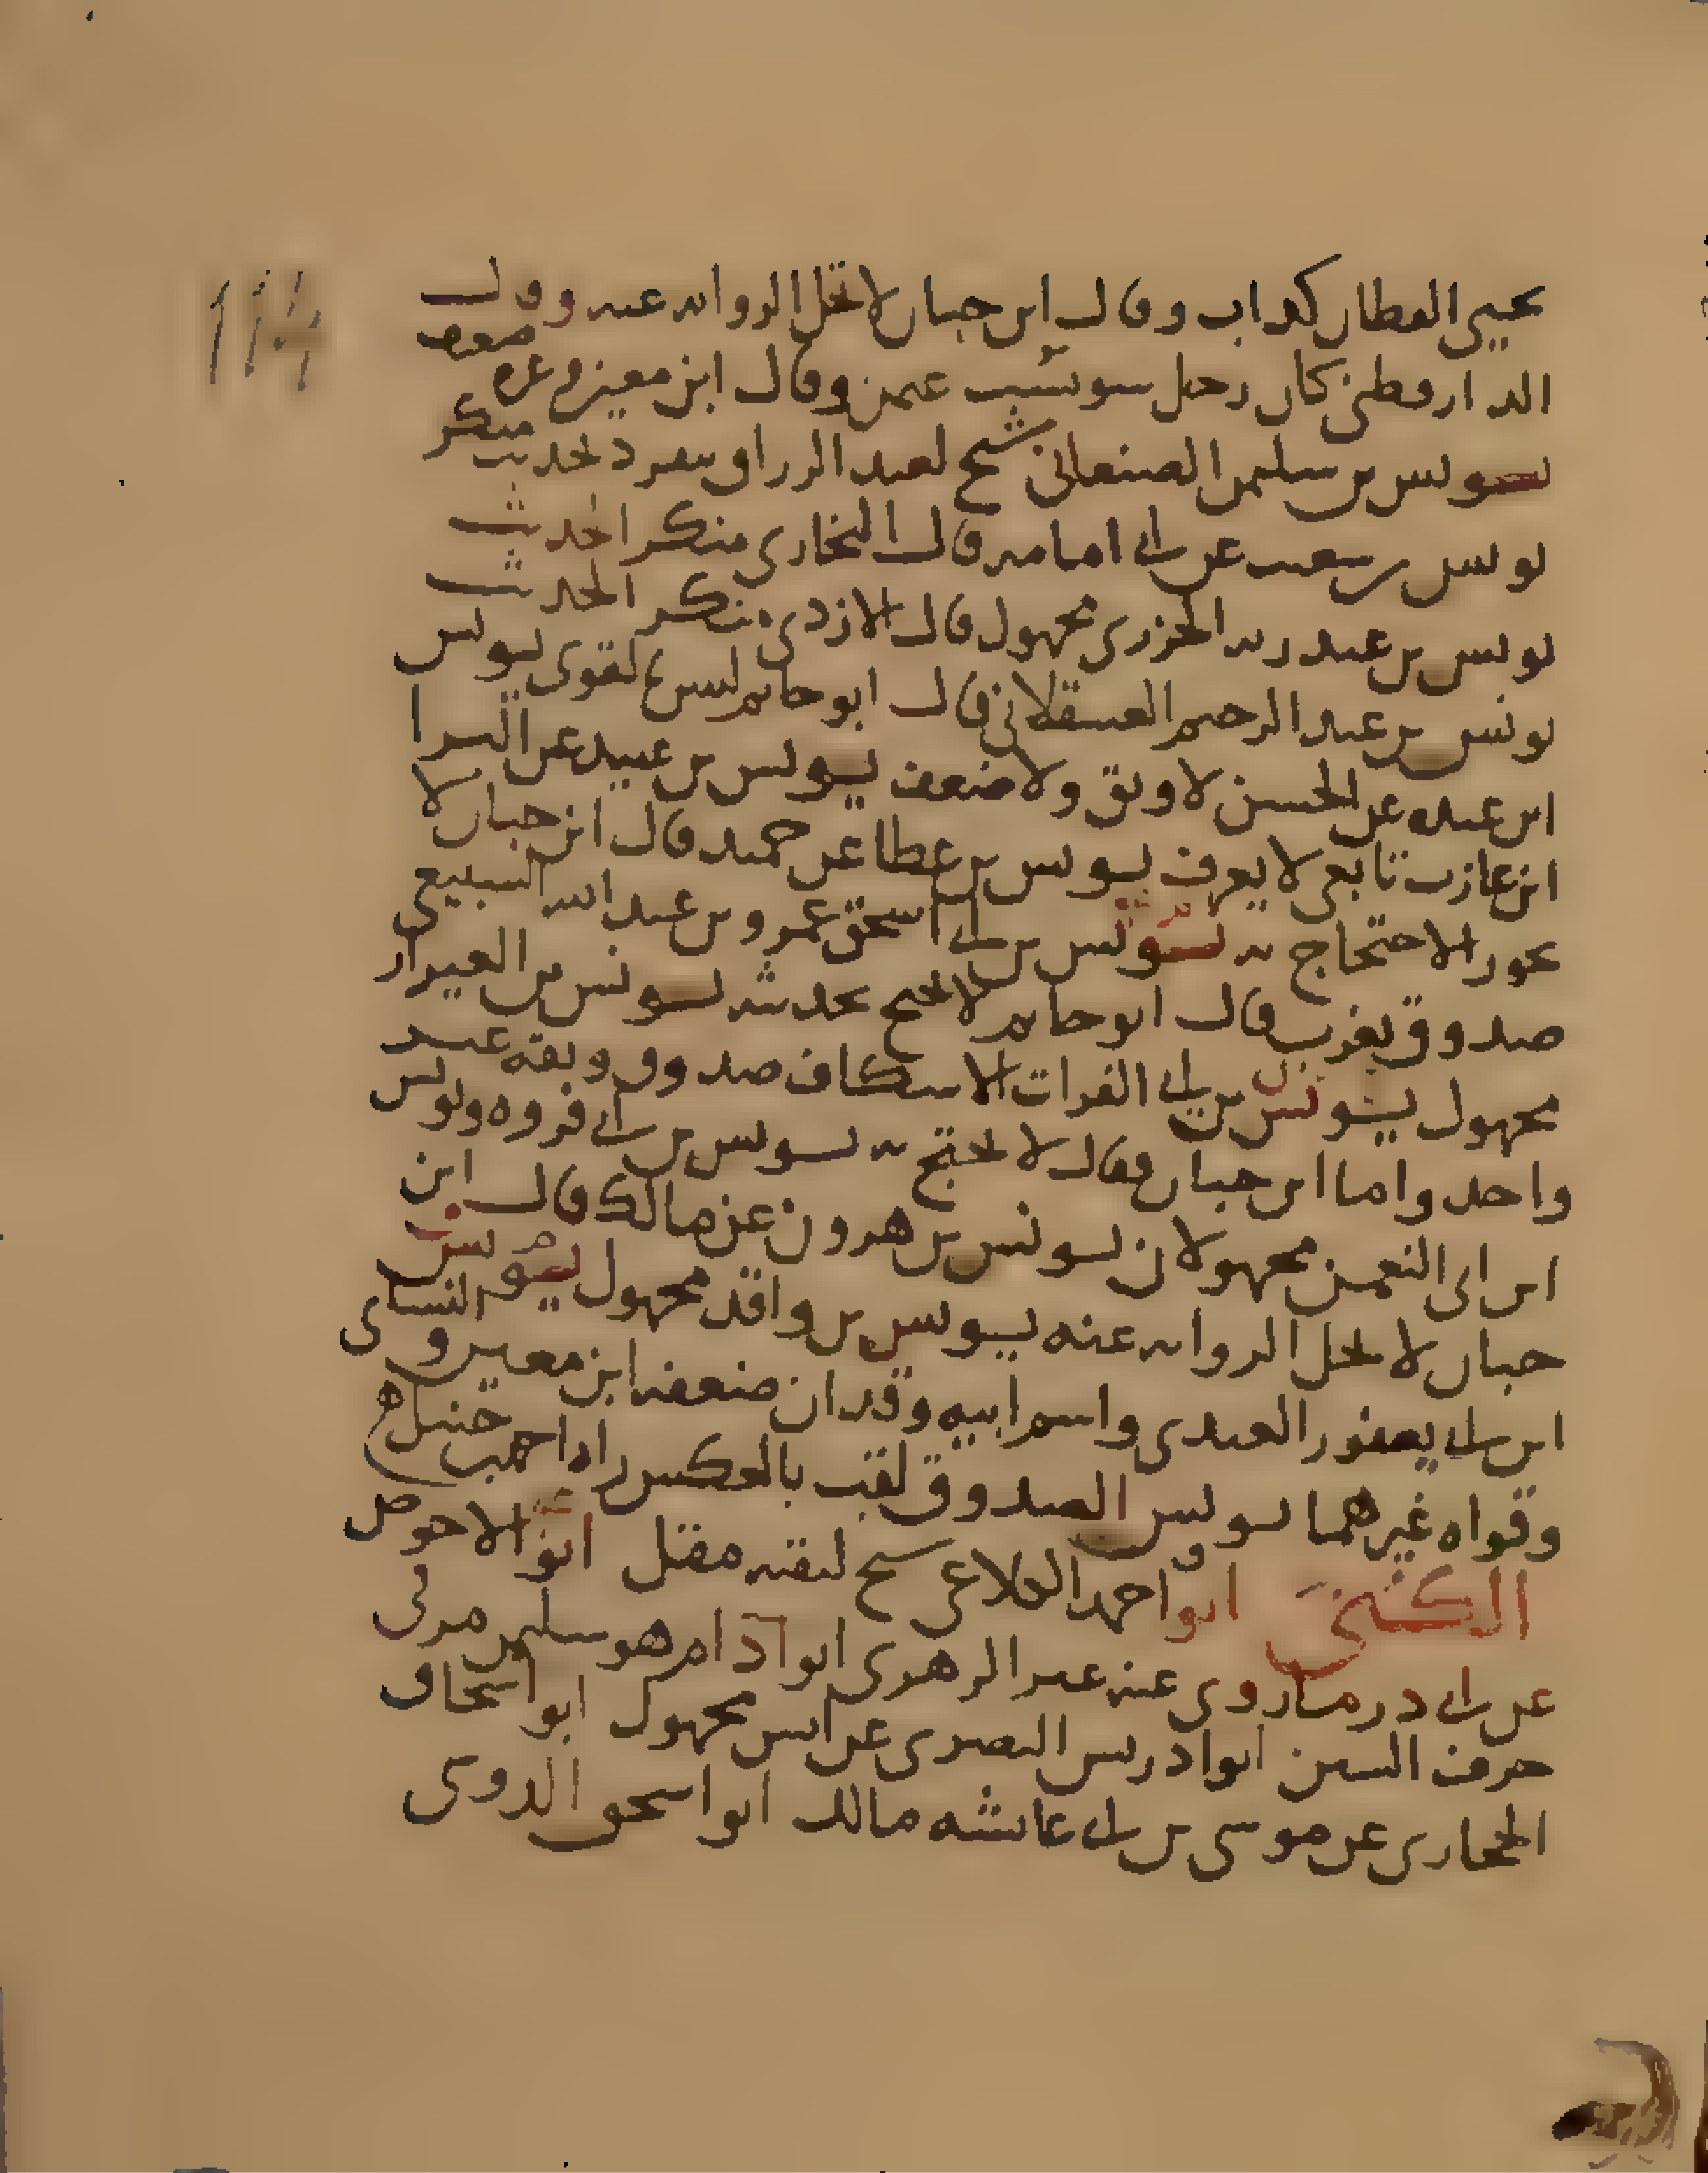 يحيى العطار كداب وقال ابن حبان لا تحل الروايه عنه وقال
الدارقطني كان رجل سو يتشيع عمن وقال ابن معين وغيره ضعيف
يونس بن سليمن الصنعاني شيخ لعبد الرزاق ينفرد بحديث منكر
يونس بن شعيب عن ابي امامه قال البخاري منكر الحديث
يونس بن عبد ربه الجزري مجهول قال الازدي منكر الحديث
يونس بن عبد الرحيم العسقلاني قال ابو حاتم ليس بالقوي يونس
ابن عبده عن الحسن لا وثق ولا ضعف يونس بن عبيد عن البرا
ابن عازب تابعي لا يعرف يونس بن عطا عن حميد قال ابن حبان لا
يجوز الاحتجاج به يونس بن ابي اسحق عمرو بن عبد الله السبيعي
صدوق يغرب قال ابو حاتم لا يحتج بحديثه يونس بن العيزار
مجهول يونس بن ابي الفرات الاسكاف صدوق وثقه غير
واحد واما ابن حبان فقال لا يحتج به يونس بن ابي فروه ويونس
ابن ابي النعمن مجهولان يونس بن هرون عن مالك قال ابن
حبان لا تحل الروايه عنه يونس بن واقد مجهول يونس
ابن ابي يعفور العبدي واسم ابيه وقدان ضعفه ابن معين والنساي
وقواه غيرهما يونس الصدوق لقب بالعكس راه احمد بن حنبل
الكنى ابو احمد الكلاعي شيخ لبقيه مقل ابو الاحوص
عن ابي ذر ما روى عنه غير الزهري ابو ادام هو سليمن مر في
حرف السين ابو ادريس البصري عن انس مجهول ابو اسحاق
الحجازي عن موسى بن ابي عايشه مالك ابو اسحق الدوسي